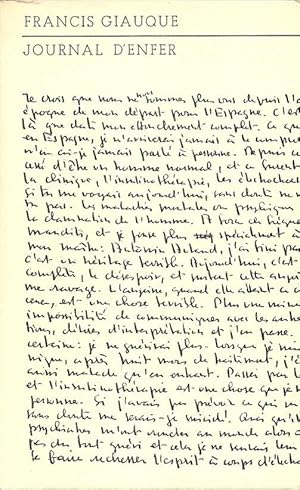 FRANCIS GIAUQUE
JOURNAL D'ENFER
Je crois que nous ne nous sommes plus vus depuis l'a
époque de mon départ pour l'Espagne. C'est
là que date mon effondrement complet. Ce que
en Espagne, je n'arriverai jamais à le comple
n'en ai-je jamais parlé à personne. Depuis ce
cessé d'être un homme normal, et ce furent
la clinique, l'insulinothérapie, les électrochocs
Si tu me voyais aujourd'hui, sans doute ne
tu pas. Les maladies mentales ou psychiques
la damnation de l'homme. A force de
maudits, et je pense plus spécialement à
mon maître: Antonin Artaud, j'ai fini par
c'est un héritage terrible. Aujourd'hui, c'est
complète, le désespoir, et surtout cette angoi
me ravage. L'angoisse, quand elle atteint a ce
cence, est une chose terrible. Plus une minu
impossibilité de communiquer avec les autre
tions, délires d'interprétation et j'en passe.
certaine: je ne guérirai plus. Lorsque je
nique, après huit mois de traitement, j'é
aussi malade qu'en entrant. Passer par l
et l'insulinothérapie est une chose que je n
personne. Si j'avais pu prévoir ce qui m
sans doute me serais-je suicidé. Ainsi qu'i
psychiatres m'ont rendu au monde alors
pas du tout guéri et cela je ne voulais
le faire redresser l'esprit à coups d'élect